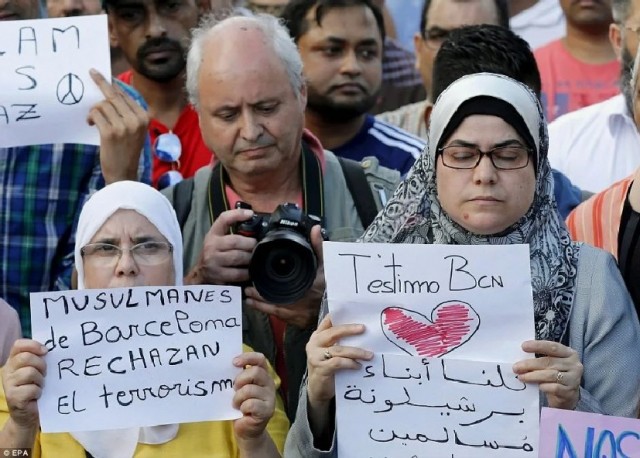 LAM
S
AZ
MUSULMANES
de Barcelona
RECHAZAN
EL terrorism
T'estimo Bcn
كلنا أبناء
برشيلونة
مسالمين
Nikon
© EPA